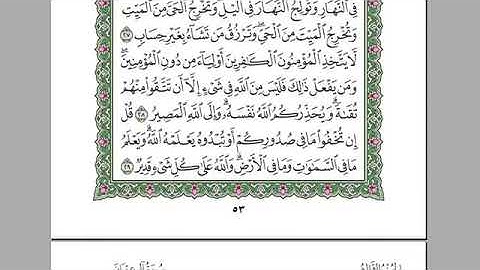 فِي النَّهَارِ وَتُولِجُ النَّهَارَ فِي اللَّيْلِ وَتُخْرِجُ الْحَيَّ مِنَ الْمَيِّتِ
وَتُخْرِجُ الْمَيِّتَ مِنَ الْحَيِّ وَتَرْزُقُ مَن تَشَاءُ بِغَيْرِ حِسَابٍ ٢٧
لَّا يَتَّخِذِ الْمُؤْمِنُونَ الْكَافِرِينَ أَوْلِيَاءَ مِن دُونِ الْمُؤْمِنِينَ
وَمَن يَفْعَلْ ذَٰلِكَ فَلَيْسَ مِنَ اللَّهِ فِي شَيْءٍ إِلَّا أَن تَتَّقُوا مِنْهُمْ
تُقَاةً وَيُحَذِّرُكُمُ اللَّهُ نَفْسَهُ وَإِلَى اللَّهِ الْمَصِيرُ ٢٨ قُلْ
إِن تُخْفُوا مَا فِي صُدُورِكُمْ أَوْ تُبْدُوهُ يَعْلَمْهُ اللَّهُ وَيَعْلَمُ
مَا فِي السَّمَاوَاتِ وَمَا فِي الْأَرْضِ وَاللَّهُ عَلَىٰ كُلِّ شَيْءٍ قَدِيرٌ ٢٩
٥٣